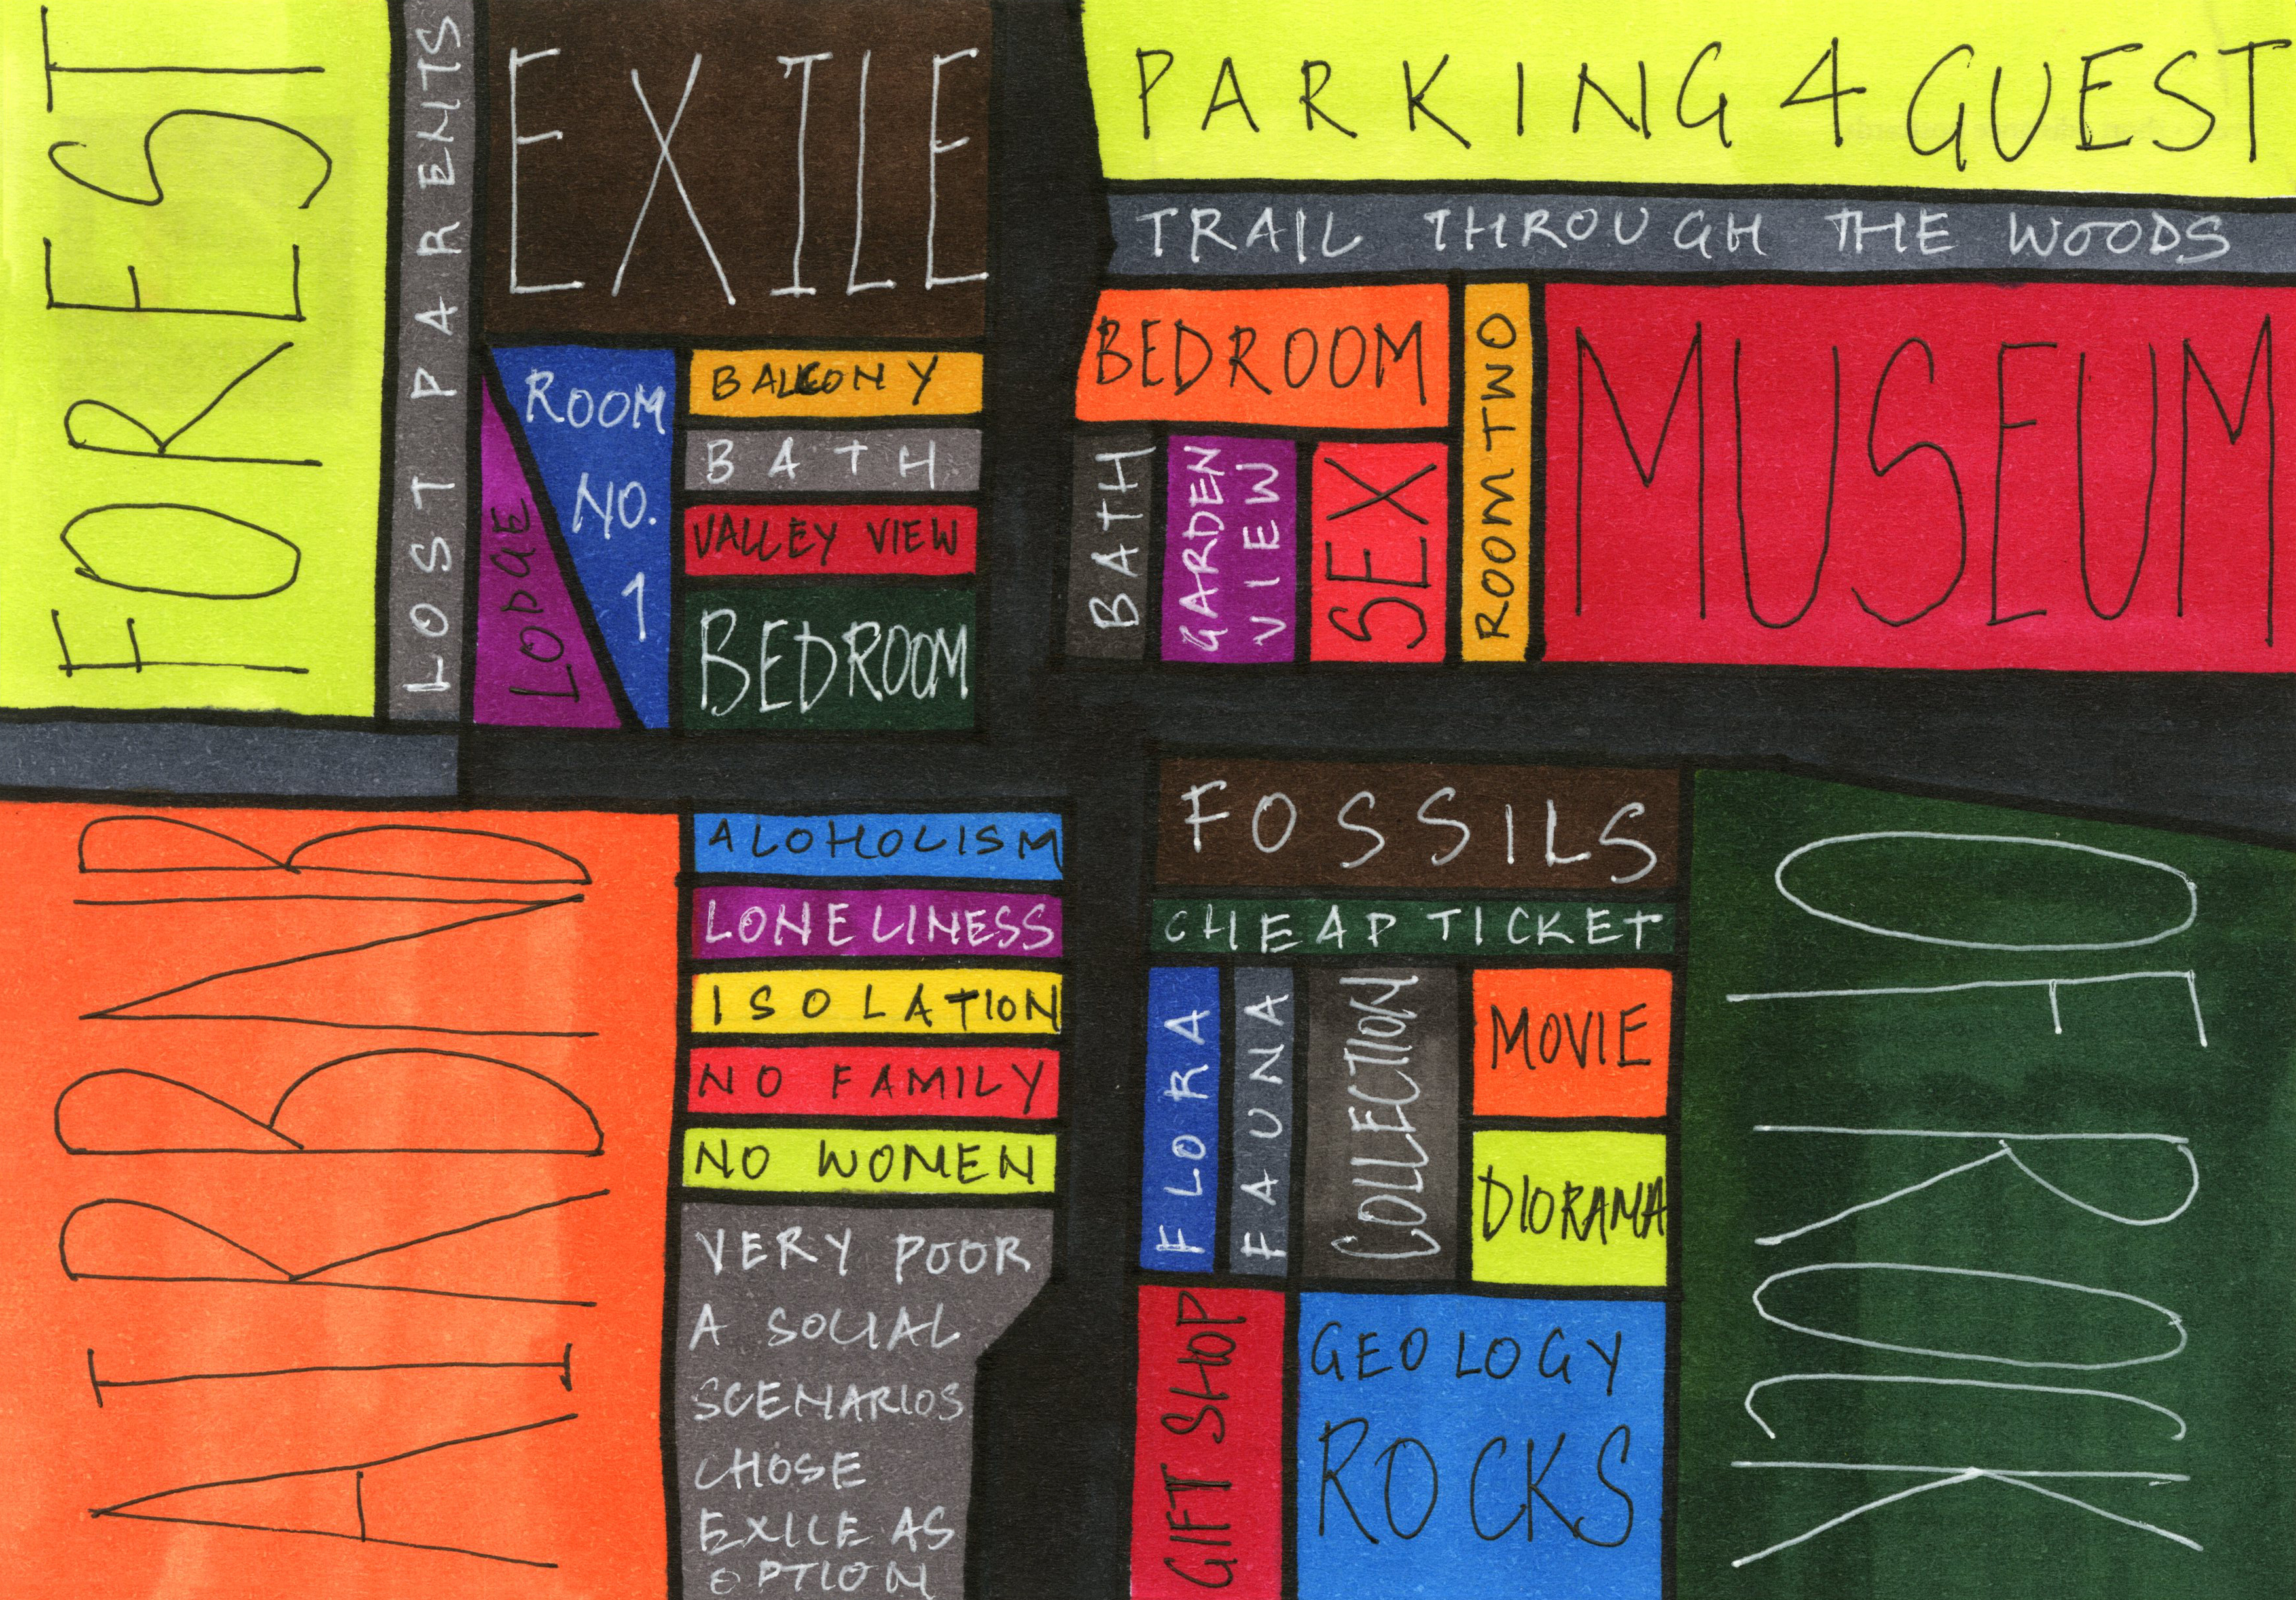 FOREST
LOST PARENTS
EXILE
LODGE
ROOM
NO.
1
BALCONY
BATH
VALLEY VIEW
BEDROOM
PARKING 4 GUEST
TRAIL THROUGH THE WOODS
BEDROOM
BATH
GARDEN
VIEW
SEX
ROOM TWO
MUSEUM
AIRBNB
ALOHOLISM
LONELINESS
ISOLATION
NO FAMILY
NO WOMEN
VERY POOR
A SOCIAL
SCENARIOS
CHOSE
EXILE AS
OPTION
FOSSILS
CHEAP TICKET
FLORA
FAUNA
COLLECTION
MOVIE
DIORAMA
GIFT SHOP
GEOLOGY
ROCKS
OF ROCK